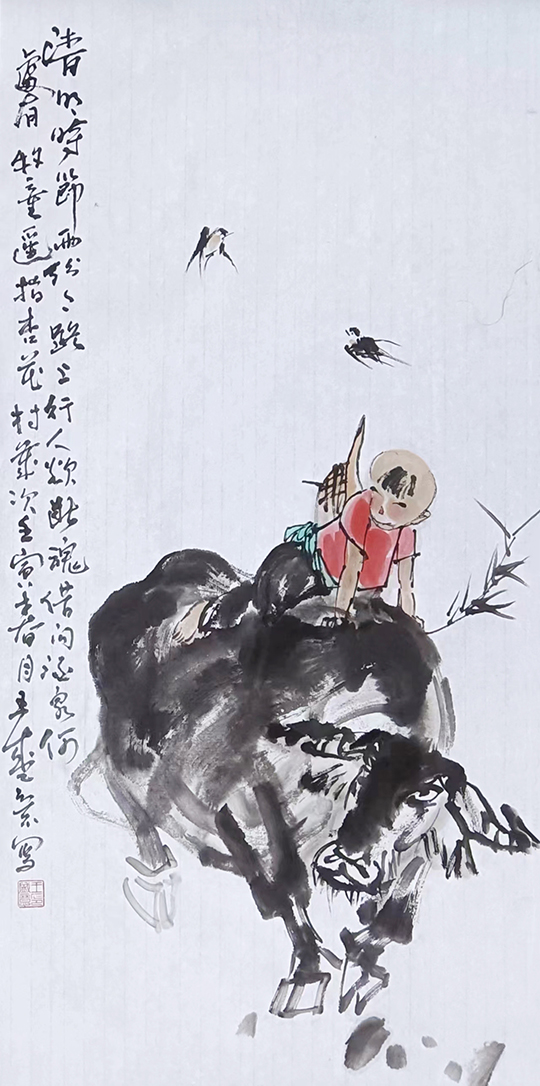 清明時節雨紛々路上行人欲断魂借问酒家何
處有牧童遥指杏花村歲次壬寅年春月王盛写